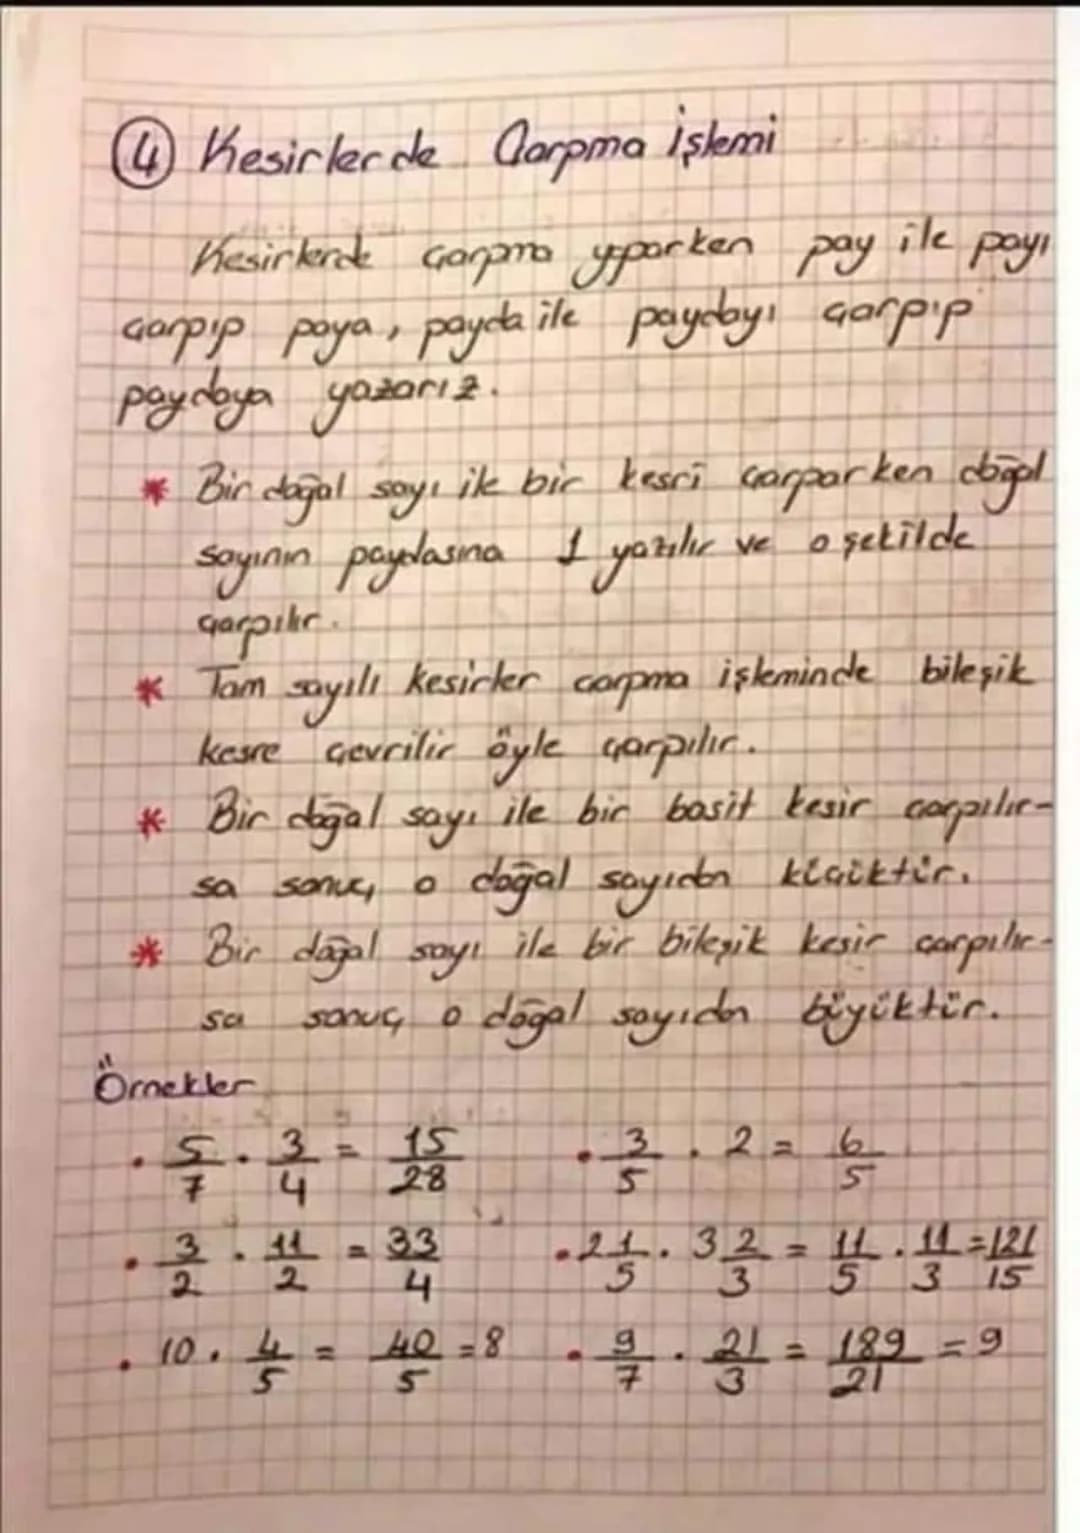 4 Kesirlerde Çarpma İşlemi
Kesirlerde çarpma yaparken pay ile payı
çarpıp paya, payda ile paydayı çarpıp
paydaya yazarız.
* Bir doğal sayı ile bir kesri çarparken doğal
sayının paydasına 1 yazılır ve o şekilde
çarpılır.
* Tam sayılı kesirler çarpma işleminde bileşik
kesre çevrilir öyle çarpılır.
* Bir doğal sayı ile bir basit kesir çarpılır-
sa sonuç, o doğal sayıdan küçüktür.
* Bir doğal sayı ile bir bileşik kesir çarpılır-
sa sonuç o doğal sayıdan büyüktür.
Örnekler
• 5/7 . 3/4 = 15/28 • 3/5 . 2 = 6/5
• 3/2 . 11/2 = 33/4 • 2 1/5 . 3 2/3 = 11/5 . 11/3 = 121/15
• 10 . 4/5 = 40/5 = 8 • 9/7 . 21/3 = 189/21 = 9